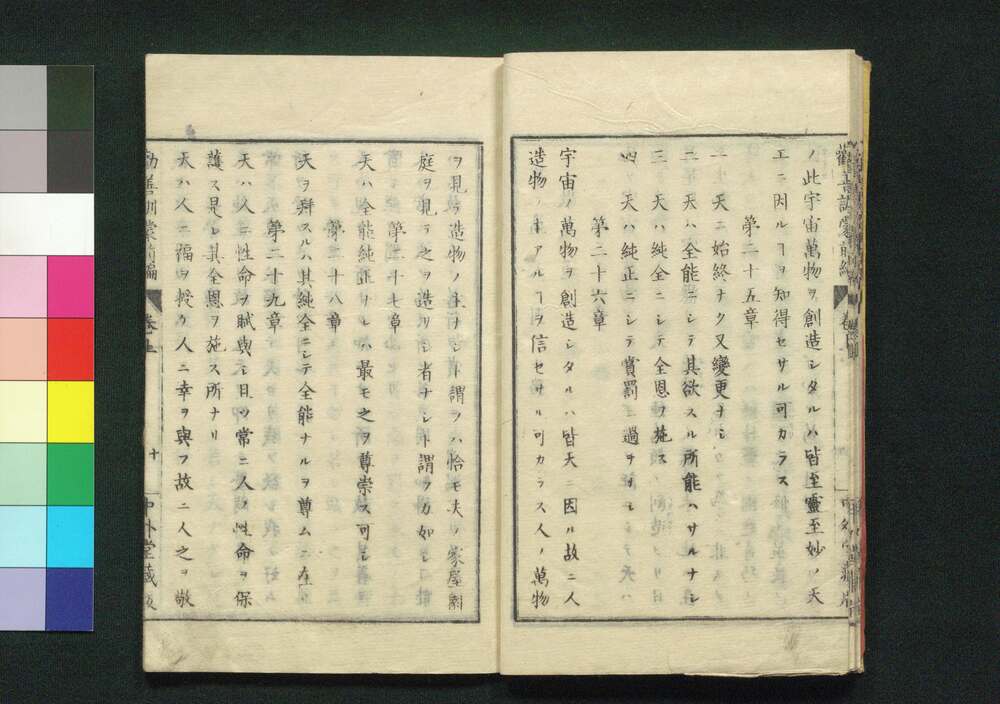 勸善訓蒙前編
ノ此宇宙萬物ヲ創造シタルハ皆至靈至妙ノ天
工ニ因ルヿヲ知得セサル可カラス
第二十五章
一 天ニ始終ナク又變更ナシ
二 天ハ全能ニシテ其欲スル所能ハサルナシ
三 天ハ純全ニシテ全恩ヲ施ス
四 天ハ純正ニシテ賞罰ニ過ヲナシ
第二十六章
宇宙ノ萬物ヲ創造シタルハ皆天ニ因ル故ニ人
造物ノ主アルヿヲ信セサル可カラス人ノ萬物
ヲ見テ造物ノ主ナシト謂フハ恰モ夫ノ家屋園
庭ヲ見テ之ヲ造リシ者ナシト謂フカ如シ
第二十七章
天ハ全能純正ヲレハ最モ之ヲ尊崇ス可シ
第二十八章
天ヲ拜スルハ其純全ニシテ全能ナルヲ尊ムニ在
第二十九章
天ハ人ニ性命ヲ賦與シ日ツ常ニ人ノ性命ヲ保
護ス是レ其全恩ヲ施ス所ナリ
天ハ人ニ福ヲ授ケ人ニ幸ヲ與フ故ニ人之ヲ敬
勸善訓蒙前編 卷上 十 中外堂藏版